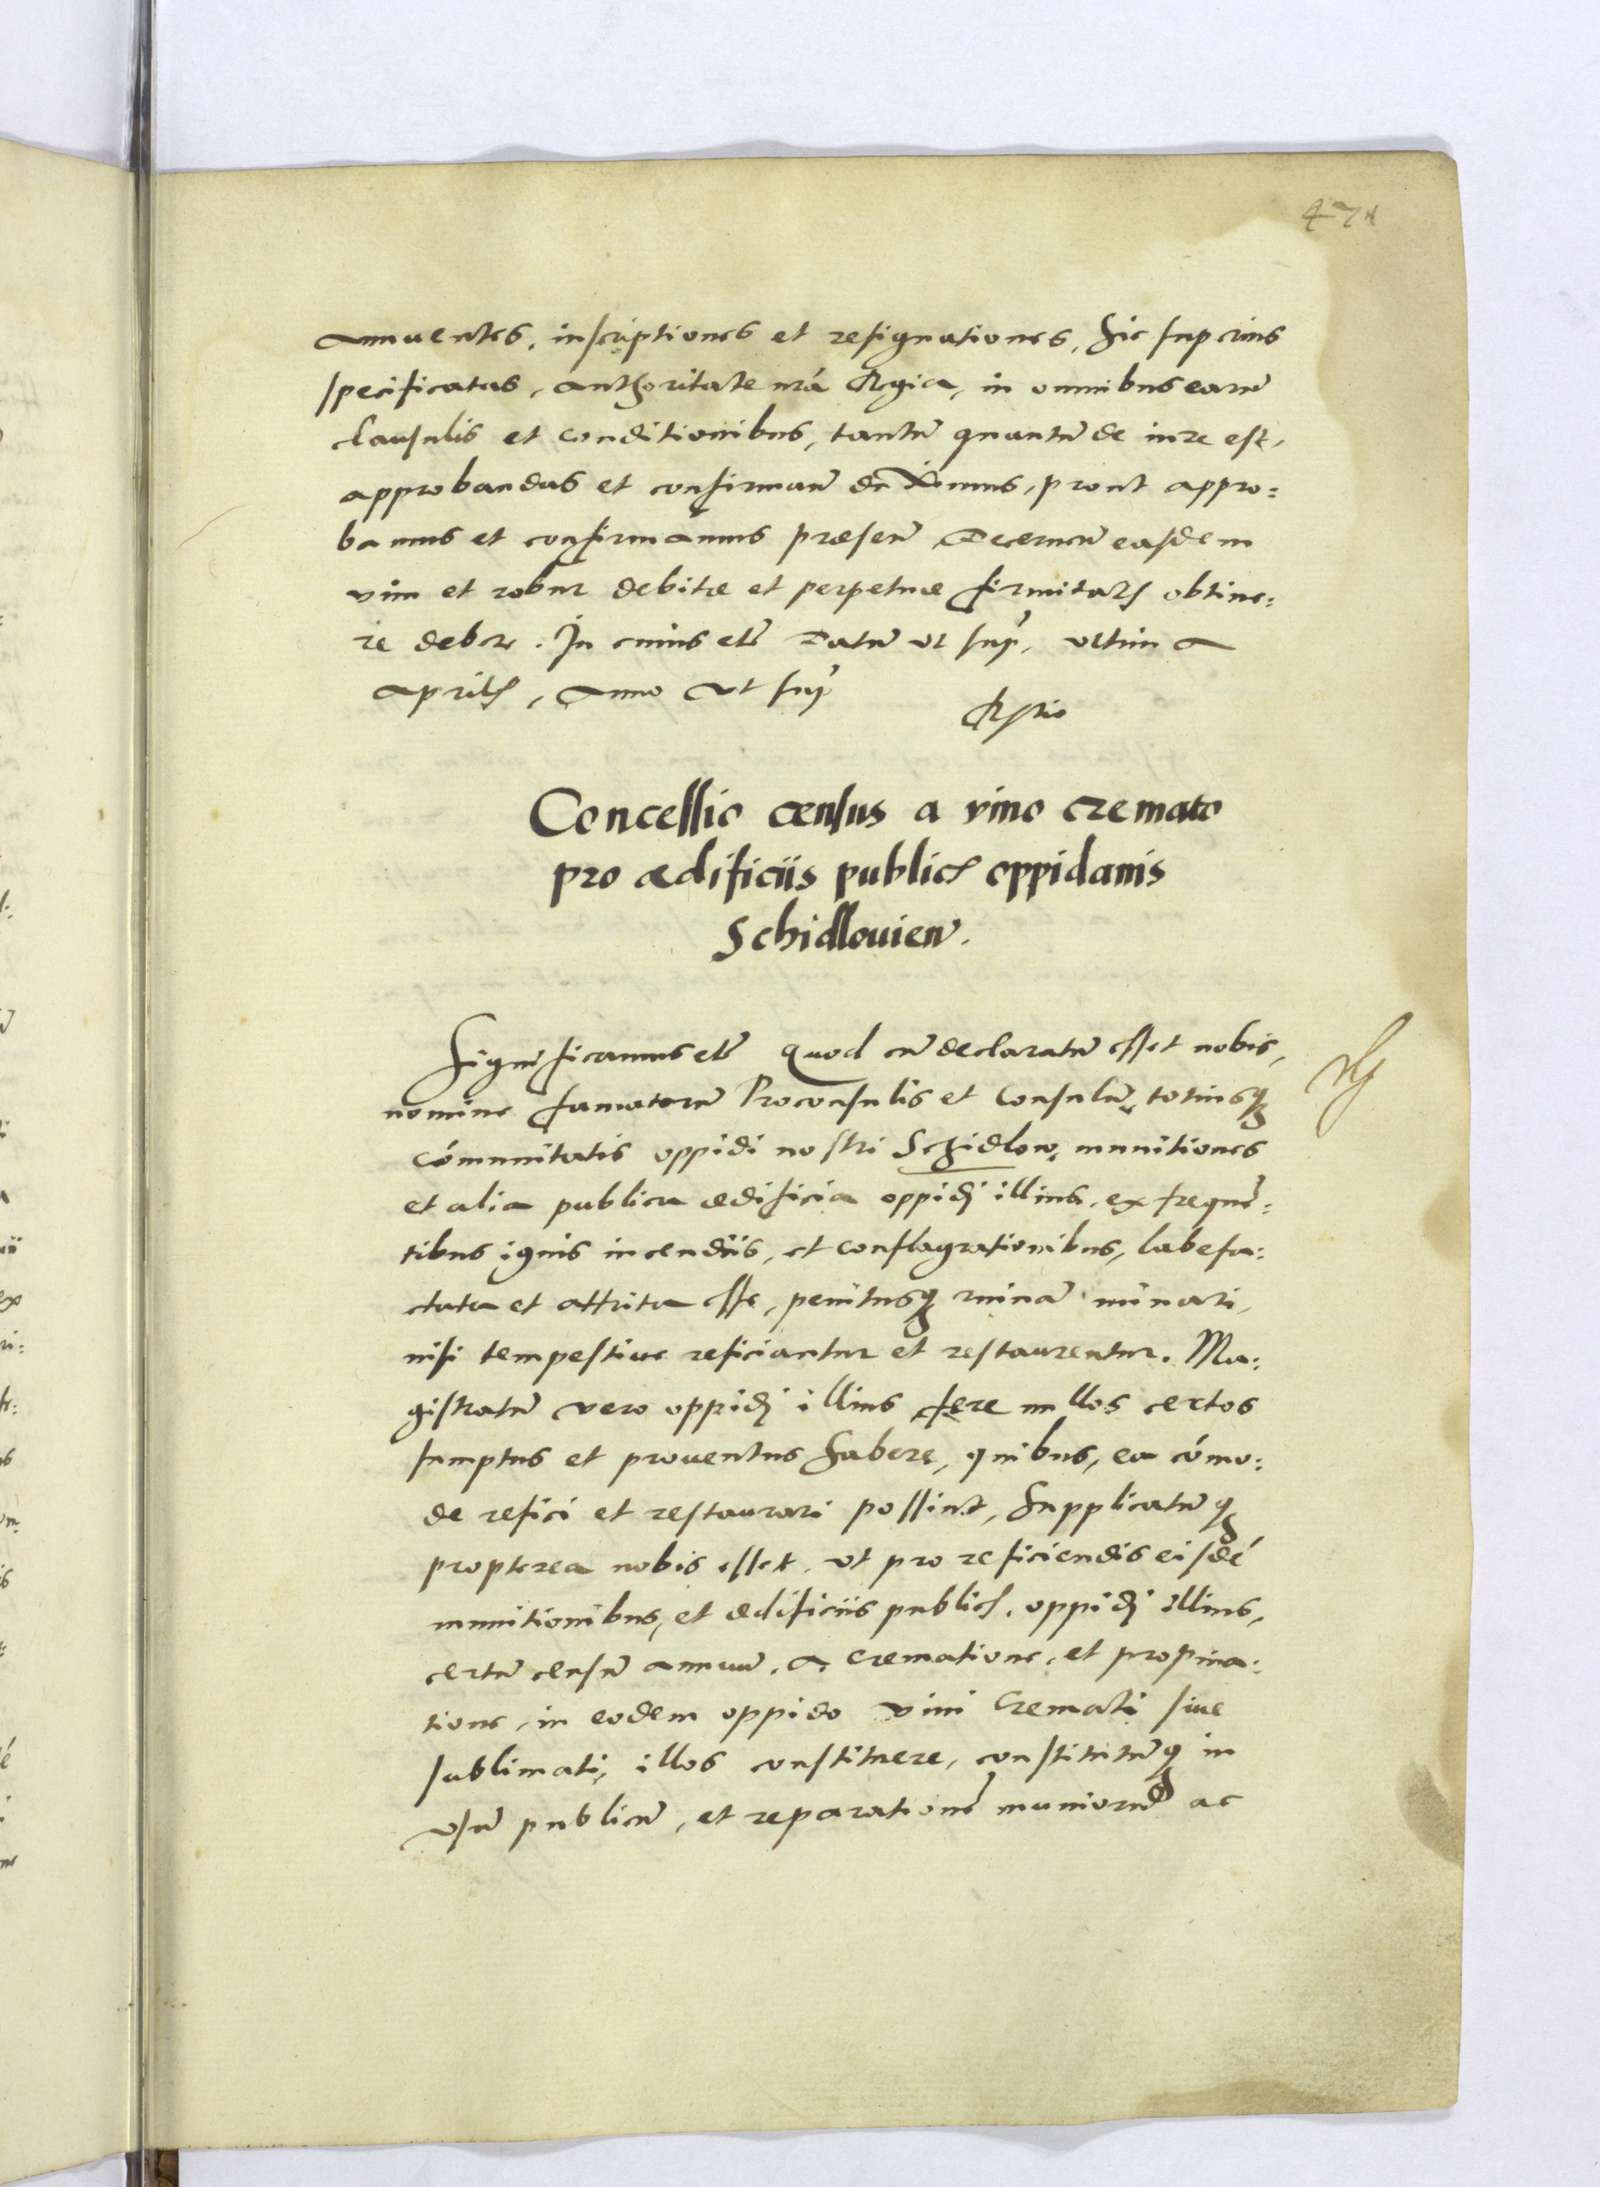 annuentes, inscriptiones et resignationes, hic superius
specificatas, authoritate nrá Regia, in omnibus earũ
clausulis et conditionibus, tantũ quantũ de iure est,
approbandas et confirmanñ duximus, prout appro:
bamus et confirmamus præsenñ Decernenñ easdem
vim et robur debitæ et perpetuæ firmitatis obtine:
re debere. In cuius etc̃ Datũ ut sup̃, ultima
Aprilis, Anno ut sup̃
Concessio census a vino cremato
pro ædificiis publicis oppidanis
Schidlouien.
Significamus etc̃ Quod cũ declaratũ esset nobis,
nomine famatorũ Proconsulis et Consulũ, totiusq
cómunitatis oppidi nostri Schidlow, munitiones
et alia publica ædificia oppidi illius, ex frequẽ:
tibus ignis incendiis, et conflagrationibus, labefa:
ctata et attrita esse, penitusq ruinã minari,
nisi tempestive reficiantur et restaurentur. Ma:
gistratũ vero oppidi illius fere nullos certos
sumptus et proventus habere, quibus, ea cómo:
de refici et restaurari possint, Supplicatũq
propterea nobis esset, ut pro reficiendis eisdé
munitionibus, et ædificiis publicis, oppidi illius,
certũ censũ annuũ, a crematione, et propina:
tione, in eodem oppido vini Cremati sive
sublimati, illos constituere, constitutũq in
usũ publicũ, et reparationẽ muniorũ ac